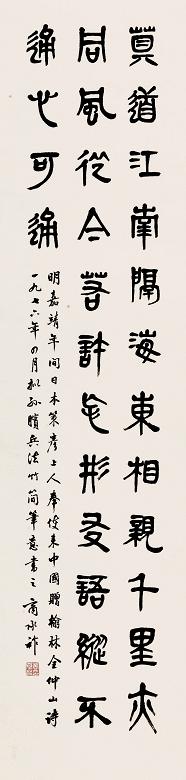 莫道江南隔海東相親千里亦
同風從今若許忘形友語縱不
通心可通
明嘉靖年间日本策彦上人奉使來中國贈翰林全仲山诗
一九七六年四月拟孙膑兵法竹简筆意書之 商承祚